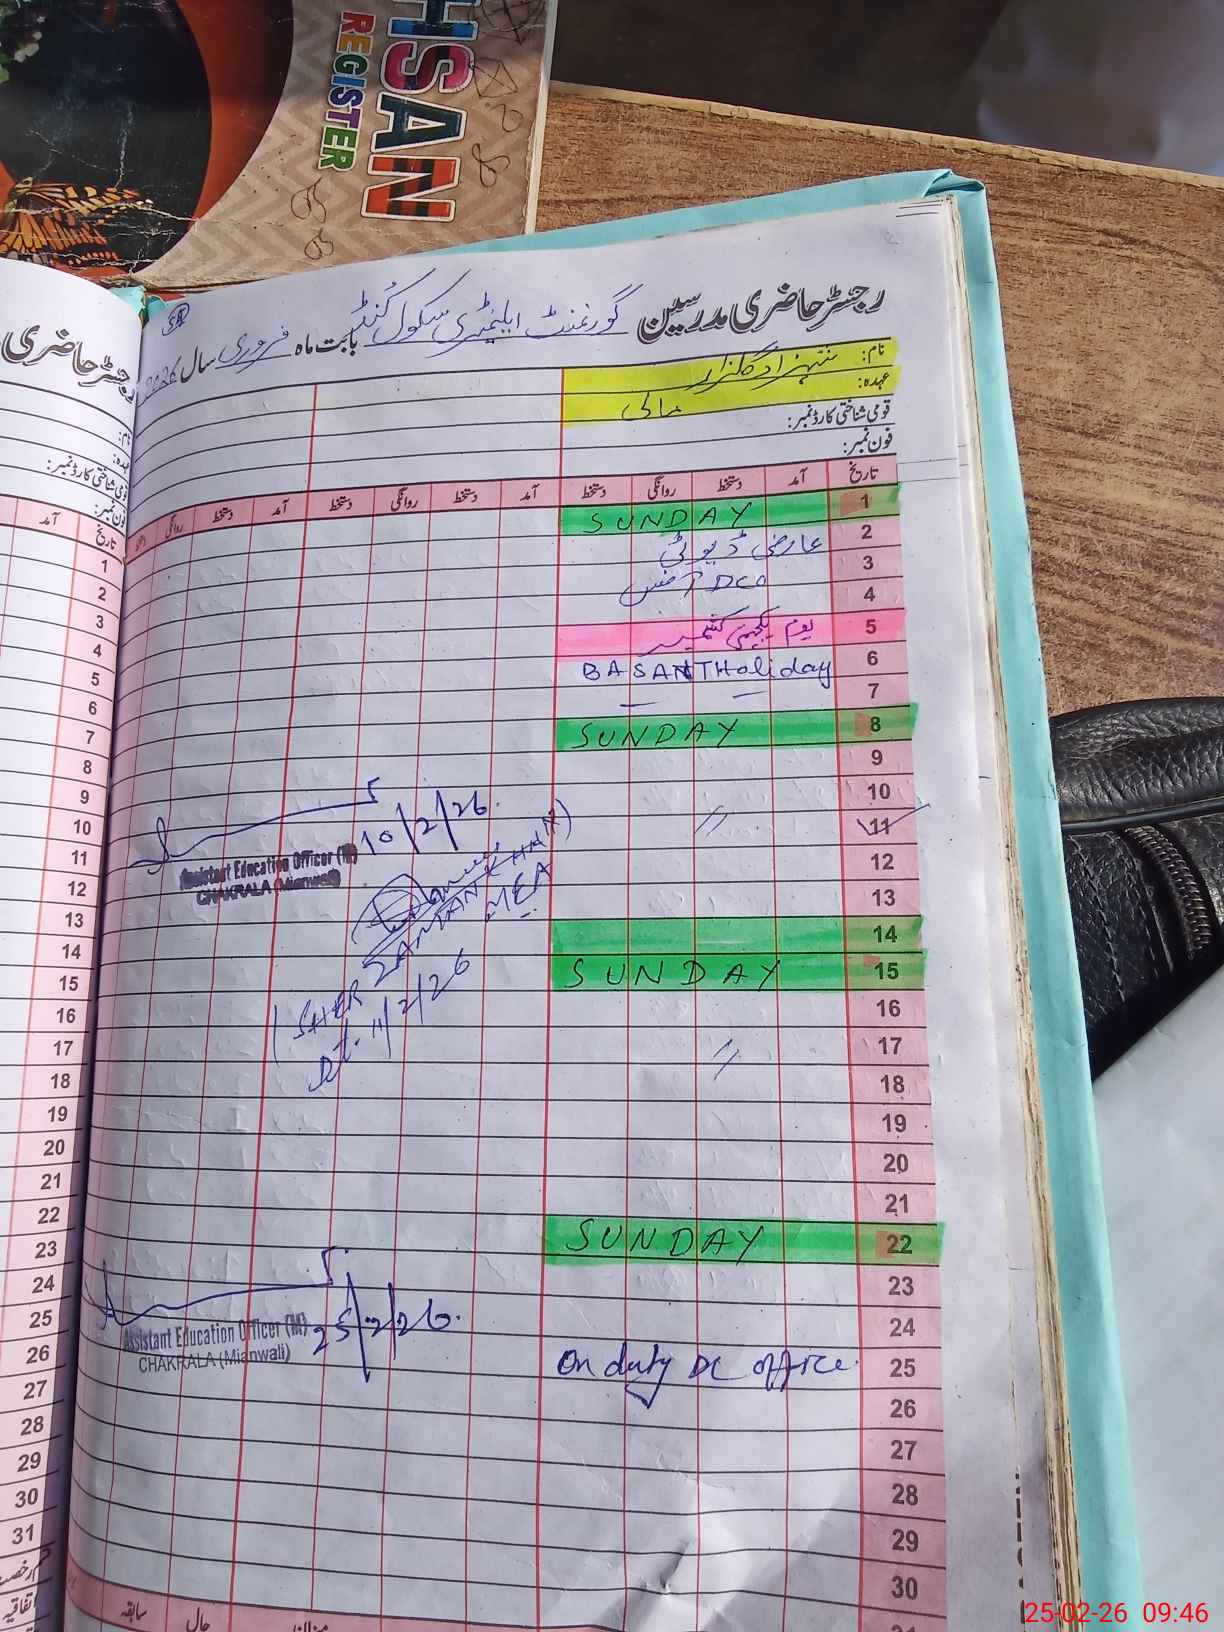 HSAN
REGISTER
رجسٹر حاضری مدرسین گورنمنٹ ایلیمنٹری سکول بابت ماہ فروری سال 2026
نام: شہزاد گلزار
عہدہ: مالی
قومی شناختی کارڈ نمبر:
فون نمبر:
تاریخ آمد دستخط روانگی دستخط آمد دستخط روانگی دستخط آمد دستخط روانگی
1 SUNDAY
2 عارضی ڈیوٹی
3 DCO آفس
4
5 یوم یکجہتی کشمیر
6 BASANT Holiday
7
8 SUNDAY
9
10
11 //
12
13
14
15 SUNDAY
16
17 //
18
19
20
21
22 SUNDAY
23
24
25 On duty DC office
26
27
28
29
30
31
10/2/26
Assistant Education Officer (M)
CHAKRALA (Mianwali)
(SHER ZAMAN KHAN)
MEA
Dt. 11/2/26
25/2/26
Assistant Education Officer (M)
CHAKRALA (Mianwali)
سابقہ
حال
میزان
رجسٹر حاضری
نام:
عہدہ:
قومی شناختی کارڈ نمبر:
فون نمبر:
تاریخ آمد
1
2
3
4
5
6
7
8
9
10
11
12
13
14
15
16
17
18
19
20
21
22
23
24
25
26
27
28
29
30
31
اتفاقیہ
25-02-26 09:46